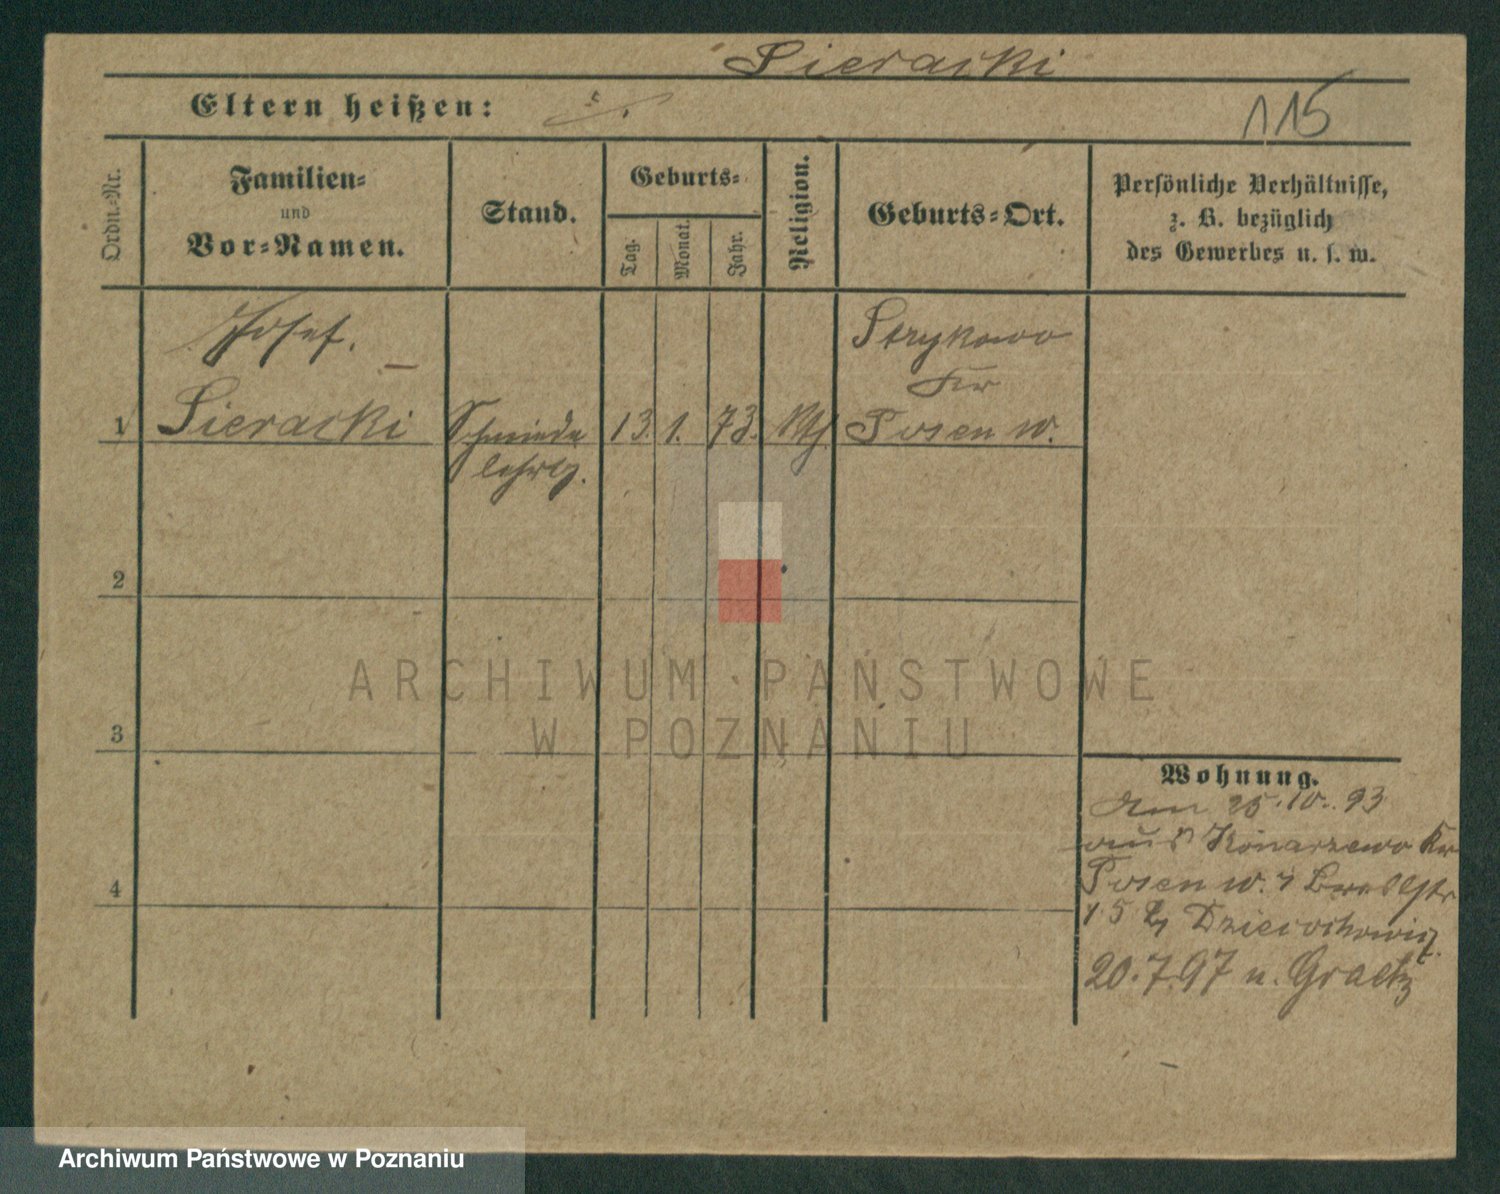 Sieracki
Eltern heißen:
115
Ordn.-Nr.
Familien-
und
Vor-Namen.
Stand.
Geburts-
Tag.
Monat.
Jahr.
Religion.
Geburts-Ort.
Persönliche Verhältnisse,
z. B. bezüglich
des Gewerbes u. s. w.
Josef.
Sieracki
1
Schmiede
lehrlg.
13.
1.
73.
Kth.
Strykowo
Kr
Posen W.
2
3
4
ARCHIWUM PAŃSTWOWE
W POZNANIU
Wohnung.
Am 25.10.93
aus Konarzewo Kr
Posen W.
15
20.7.97 n. Graetz
Archiwum Państwowe w Poznaniu